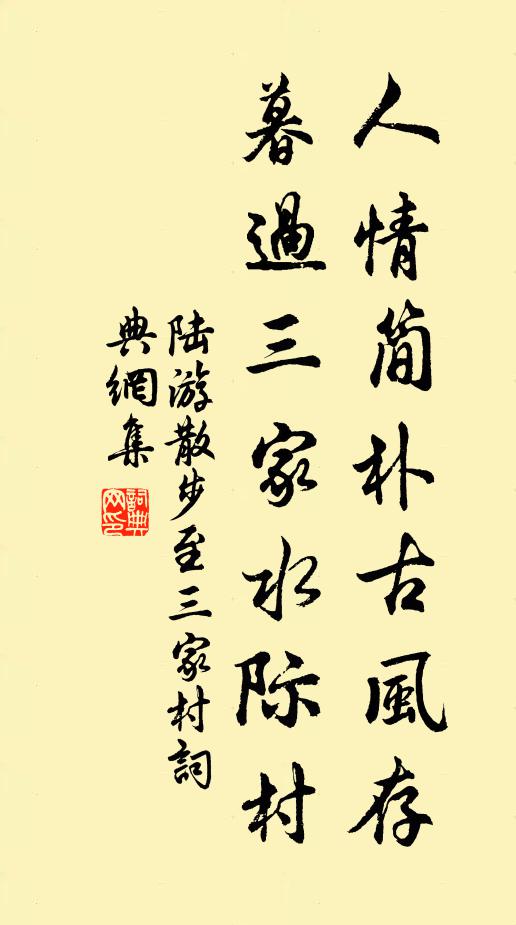 人情简朴古風存
暮過三家水际村
陆游散步至三家村詞
典網集
詞典
网印